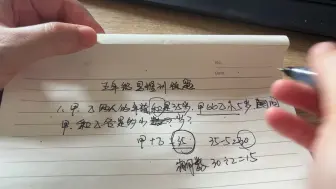 五年级思维训练题
1、甲、乙两人的年龄和是35岁,甲比乙大5岁
甲、和乙各是多少岁?
甲+乙=35 35-5=30
30÷2=15